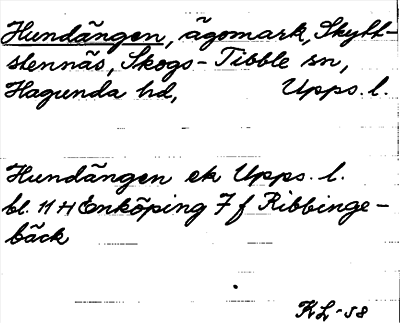 Hundängen, ägomark, Skytt-
stennäs, Skogs-Tibble sn,
Hagunda hd, Upps. l.
Hundängen ek Upps. l.
bl. 11 H Enköping 7 f Ribbinge-
bäck
KL-58